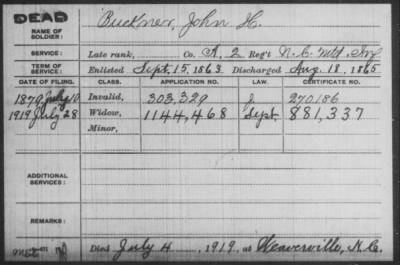 DEAD
NAME OF SOLDIER: Buckner, John H.
SERVICE: Late rank, Co. A, 2 Reg't N.C. Mtd. Inf.
TERM OF SERVICE: Enlisted Sept. 15, 1863 Discharged Aug. 18, 1865
DATE OF FILING. CLASS. APPLICATION NO. LAW. CERTIFICATE NO.
1879 July 10 Invalid, 303,329 J. 270,186
1919 July 28 Widow, 1144,468 Sept. 881,337
Minor,
ADDITIONAL SERVICES:
REMARKS:
Died July 4, 1919, at Weaverville, N.C.